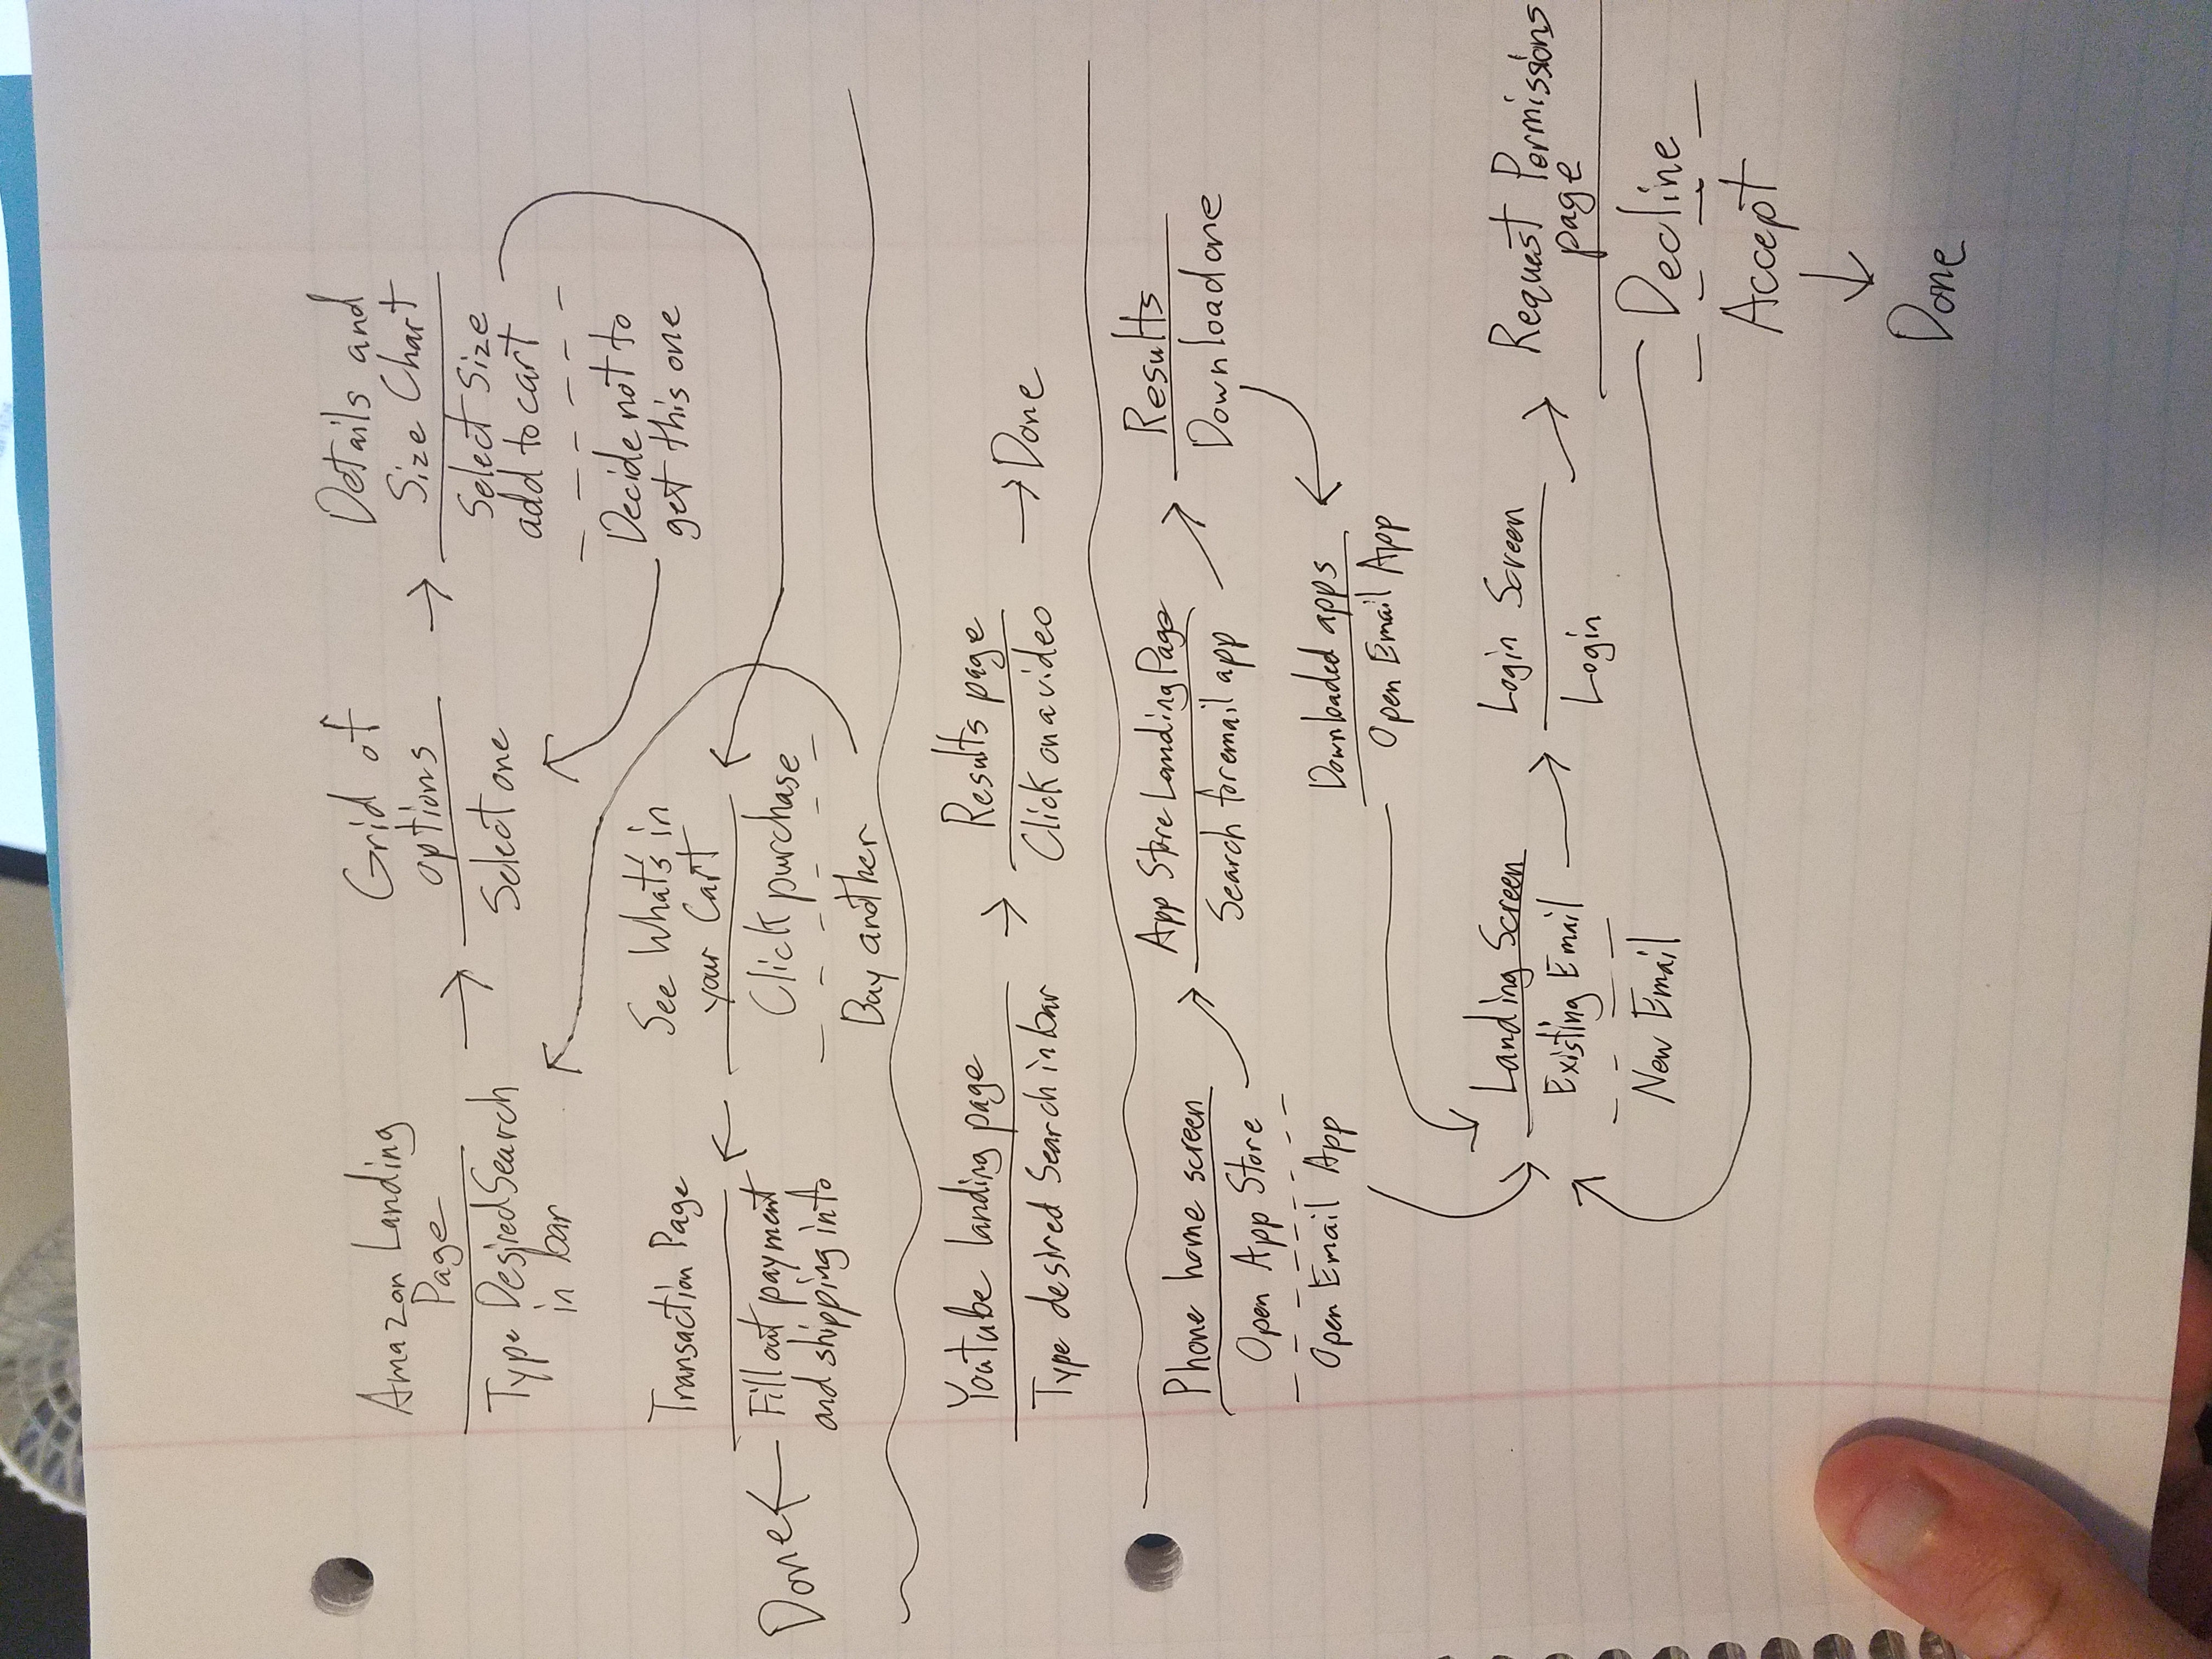 Amazon Landing
Page
Type Desired Search
in bar
Grid of
options
Select one
Details and
Size Chart
Select Size
add to cart
Decide not to
get this one
See What's in
your Cart
Click purchase
Buy another
Transaction Page
Fill out payment
and shipping info
Done
Youtube landing page
Type desired Search in bar
Results page
Click on a video
Done
Phone home screen
Open App Store
Open Email App
App Store Landing Page
Search for email app
Results
Download one
Downloaded apps
Open Email App
Landing Screen
Existing Email
New Email
Login Screen
Login
Request Permissions
page
Decline
Accept
Done